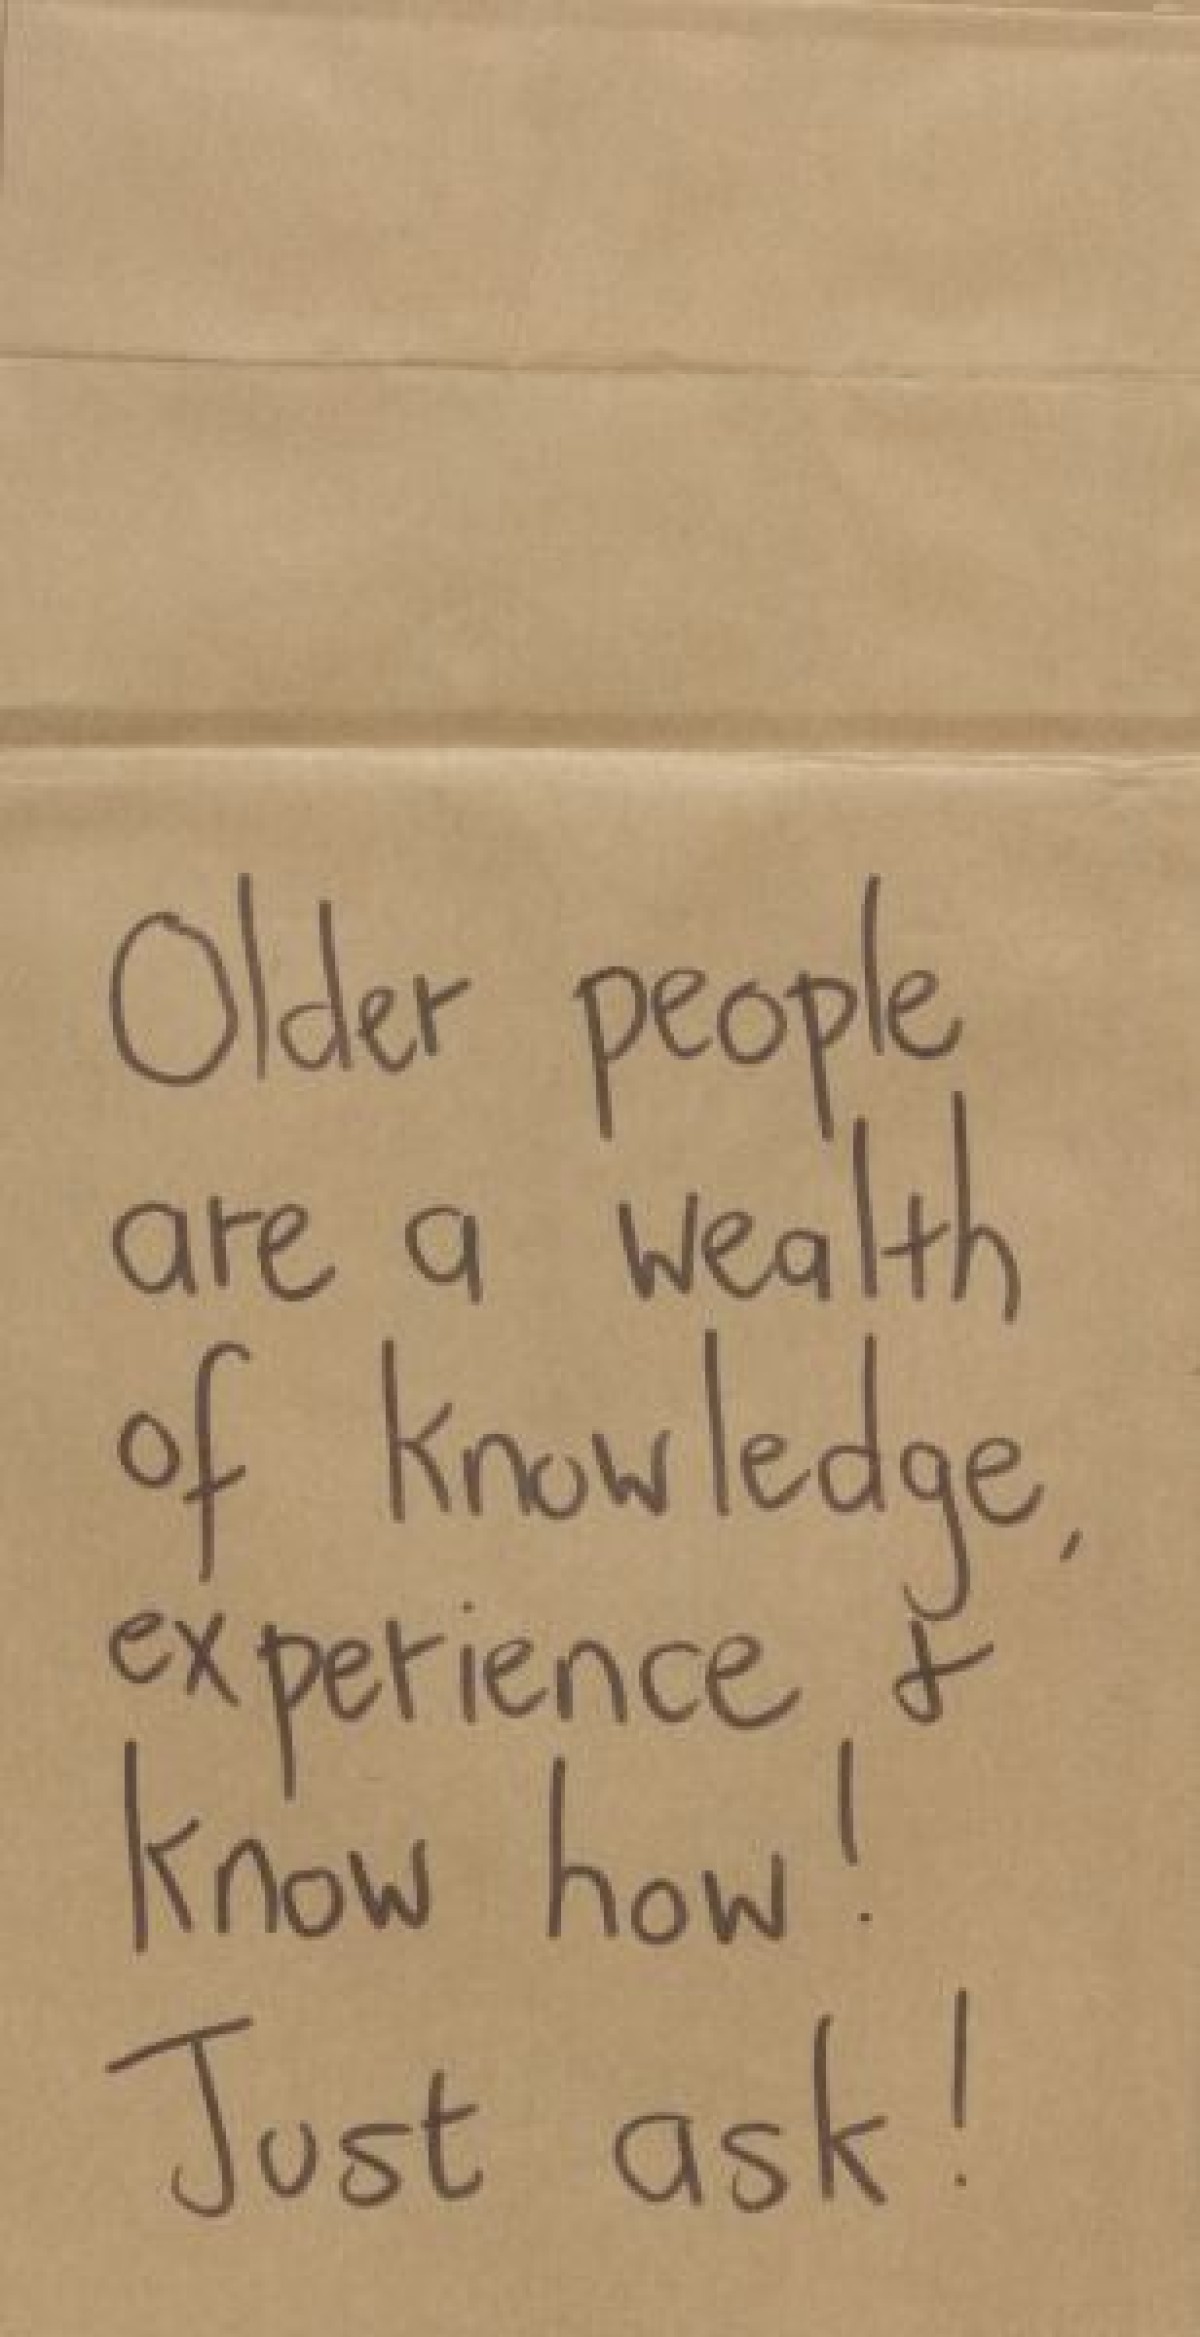 Older people
are a wealth
of knowledge,
experience &
know how!
Just ask!